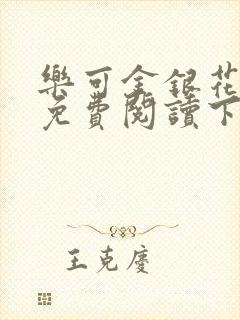 樂可金銀花
免費閱讀下
王克慶